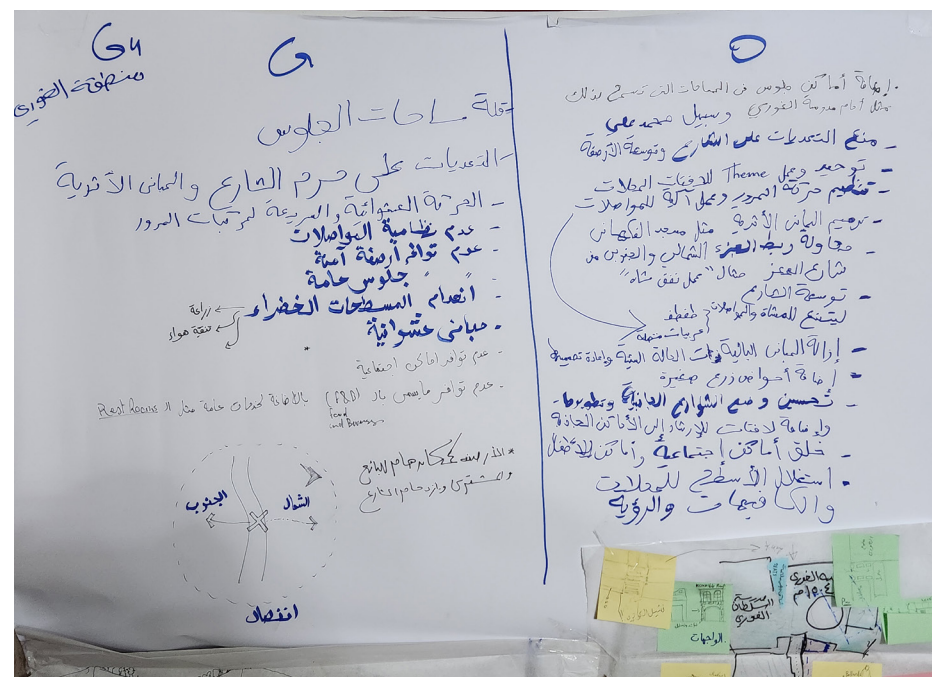 G4
منطقة الغوري
G
- قلة مساحات الجلوس
- التعديات على حرم الشارع والمباني الأثرية
- الحركة العشوائية والسريعة لمركبات المرور
- عدم نظامية المواصلات
- عدم توافر أرصفة آمنة
- " " جلوس عامة
- انعدام المسطحات الخضراء
زراعة
تنقية هواء
- مباني عشوائية
- عدم توافر اماكن اجتماعية
- عدم توافر ما يسمى بالـ (F&B) بالاضافة لخدمات عامة مثل الـ Rest Rooms
food and Beverage
ازدحام البائع
والمشتري وازدحام الشارع
الجنوب
الشمال
انفصال
O
. إضافة أماكن جلوس في المساحات التي تسمح بذلك
مثل أمام مدرسة الغوري وسبيل محمد علي
- منع التعديات على الشارع وتوسعة الأرصفة
- توحيد وعمل Theme للافتات المحلات
- تنظيم حركة المرور وعمل آلية للمواصلات
- ترميم المباني الأثرية مثل مسجد الفكهاني
- محاولة ربط المعز الشمالي والجنوبي من
شارع المعز مثال "عمل نفق مشاه"
- توسعة الشارع
ليتسع للمشاة والمواصلات
طفطف
عربيات
- إزالة المباني البالية ذات الحالة السيئة وإعادة تصميمها
- إضافة أحواض زرع صغيرة
- تحسين وضع الشوارع الجانبية وتطويرها
وإضافة لافتات للإرشاد إلى الأماكن
- خلق أماكن إجتماعية وأماكن للأطفال
. استغلال الأسطح للمحلات
والكافيهات والرؤية
مدرسة
السلطان
الغوري
الواجهات